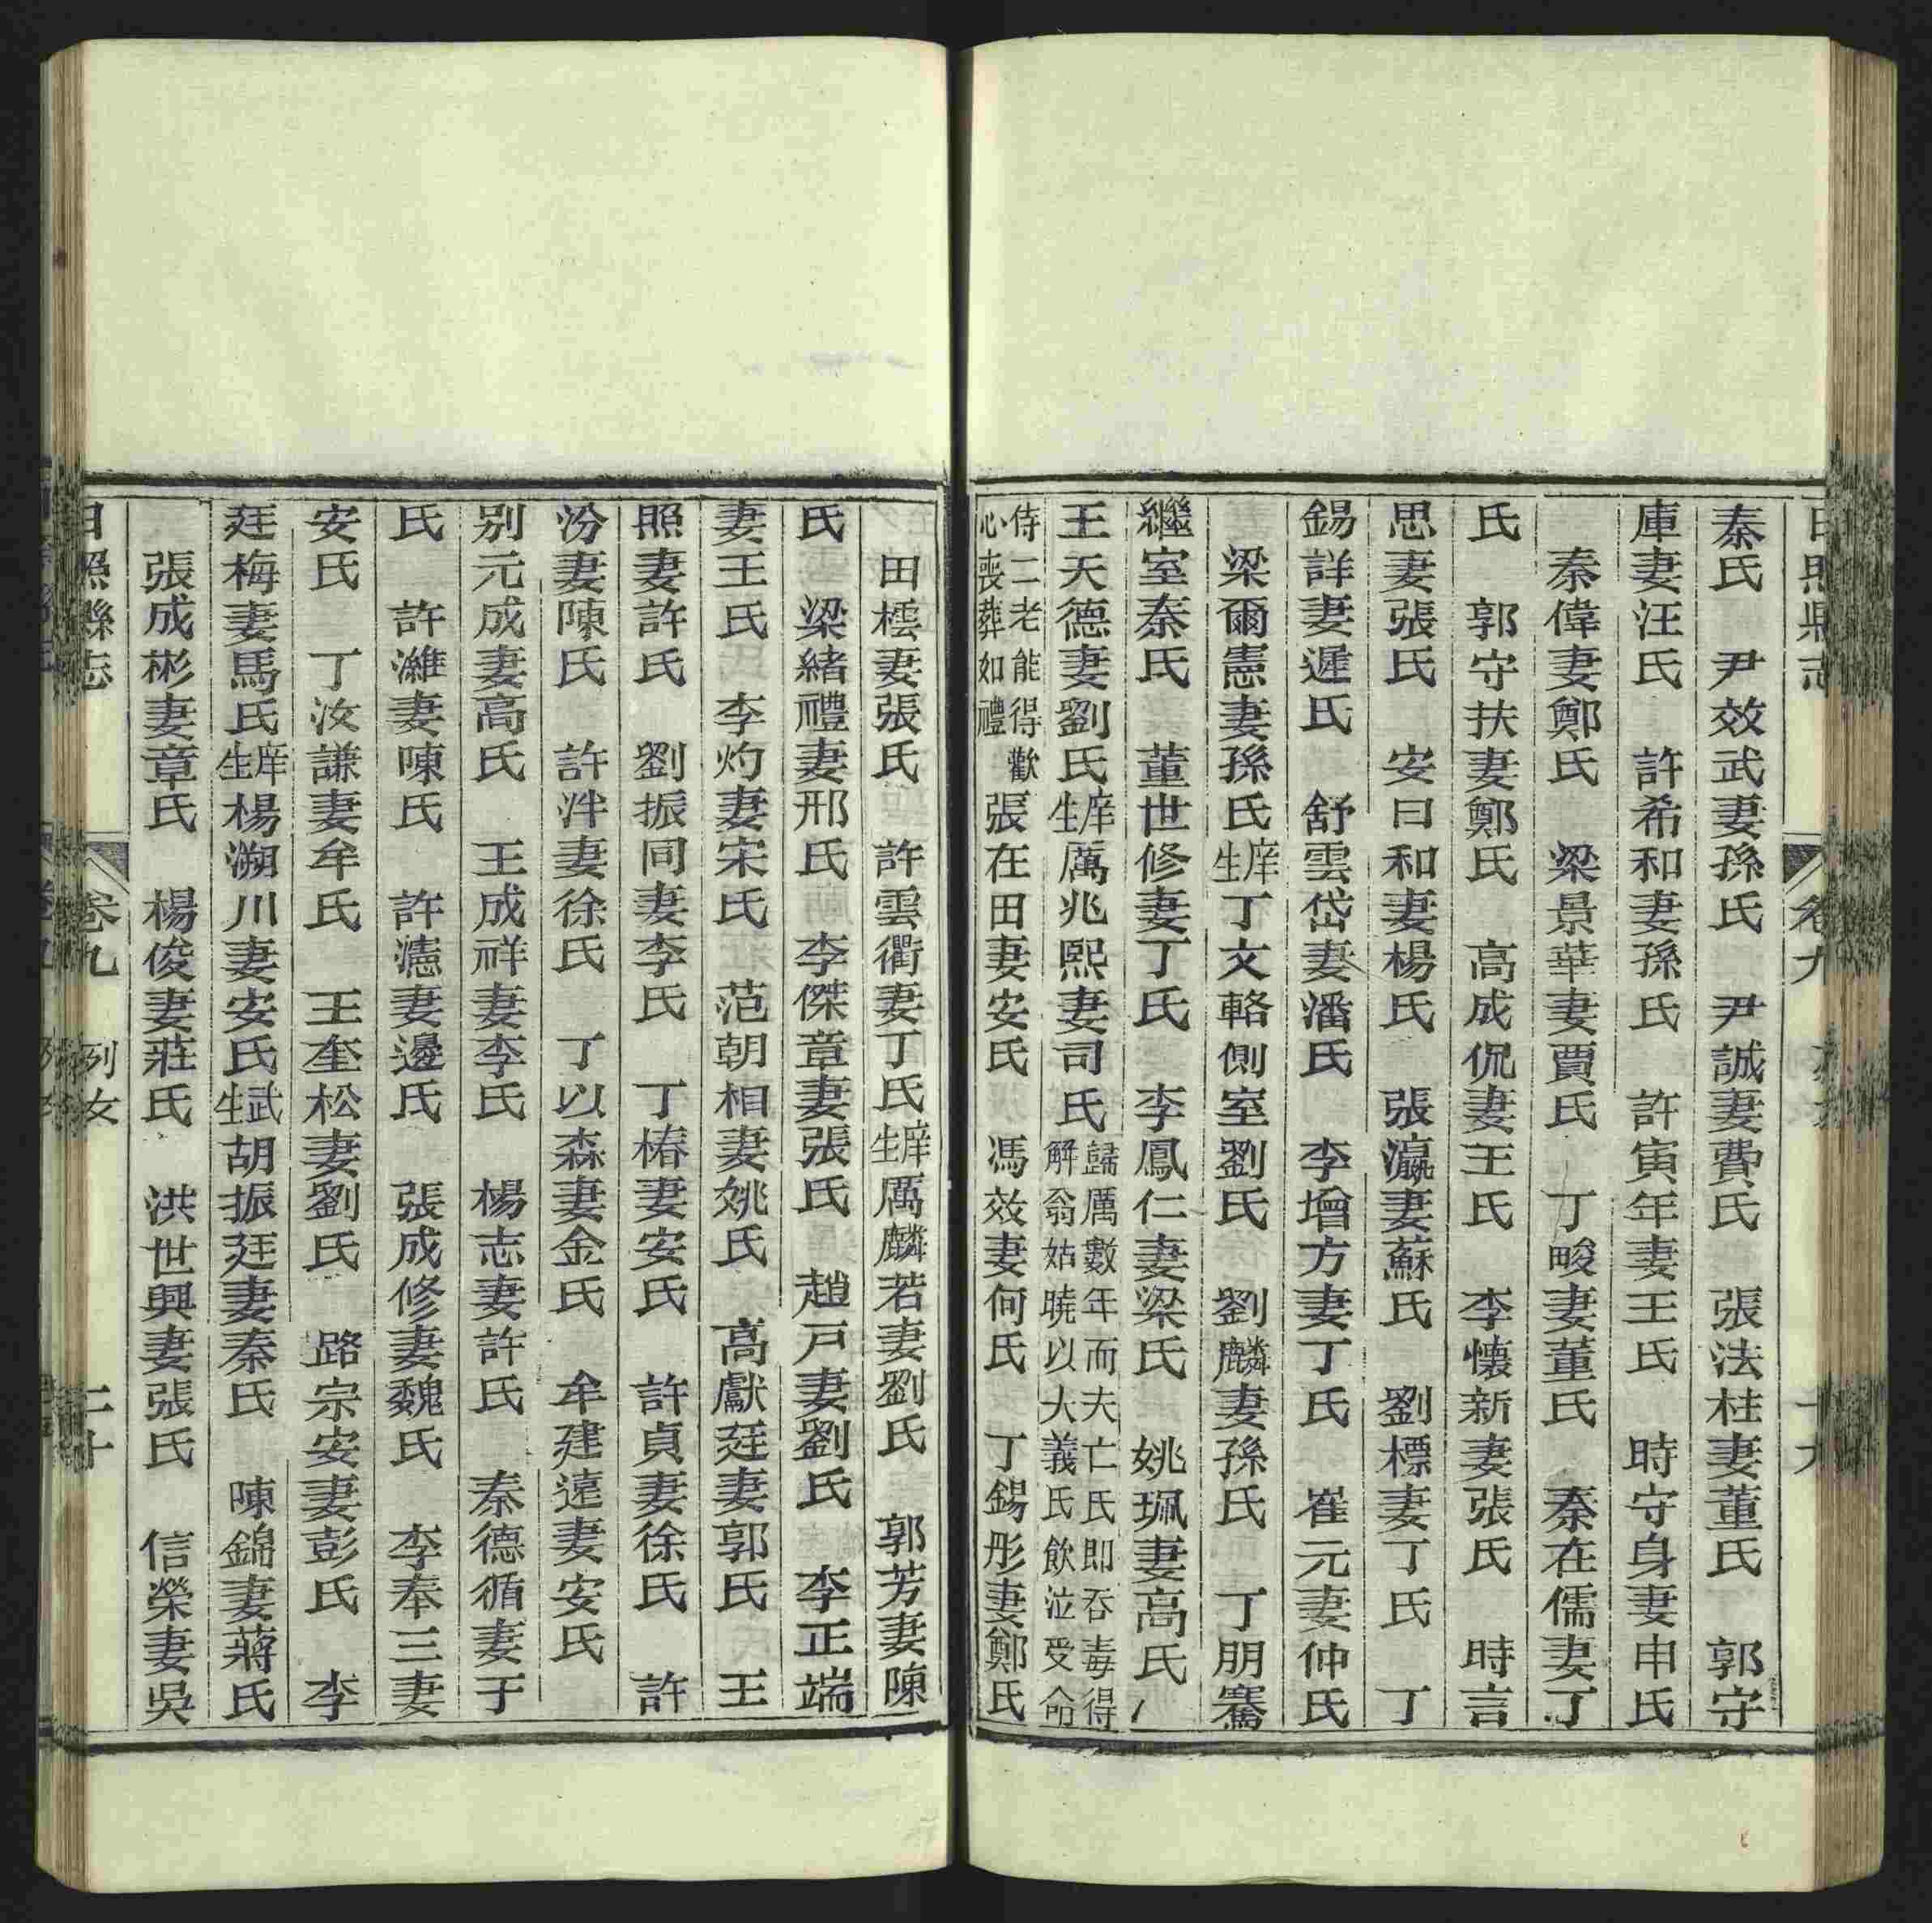 日照縣志 卷九 十九
秦氏 尹效武妻孫氏 尹誠妻費氏 張法柱妻董氏 郭守
庫妻汪氏 許希和妻孫氏 許寅年妻王氏 時守身妻申氏
秦偉妻鄭氏 梁景華妻賈氏 丁畯妻董氏 秦在儒妻丁
氏 郭守扶妻鄭氏 高成侃妻王氏 李懷新妻張氏 時言
思妻張氏 安曰和妻楊氏 張瀛妻蘇氏 劉標妻丁氏 丁
錫詳妻遲氏 舒雲岱妻潘氏 李增方妻丁氏 崔元妻仲氏
梁爾憲妻孫氏 庠生丁文輅側室劉氏 劉麟妻孫氏 丁朋騫
繼室秦氏 董世修妻丁氏 李鳳仁妻梁氏 姚珮妻高氏
王天德妻劉氏 庠生厲兆熙妻司氏 歸厲數年而夫亡氏即吞毒得解翁姑曉以大義氏飲泣受命
侍二老能得歡心喪葬如禮 張在田妻安氏 馮效妻何氏 丁錫彤妻鄭氏
田橒妻張氏 許雲衢妻丁氏 庠生厲麟若妻劉氏 郭芳妻陳
氏 梁緒禮妻邢氏 李傑章妻張氏 趙戸妻劉氏 李正端
妻王氏 李灼妻宋氏 范朝相妻姚氏 高獻廷妻郭氏 王
照妻許氏 劉振同妻李氏 丁椿妻安氏 許貞妻徐氏 許
汾妻陳氏 許泮妻徐氏 丁以森妻金氏 牟建遠妻安氏
別元成妻高氏 王成祥妻李氏 楊志妻許氏 秦德循妻于
氏 許濰妻陳氏 許瀗妻邊氏 張成修妻魏氏 李奉三妻
安氏 丁汝謙妻牟氏 王奎松妻劉氏 路宗安妻彭氏 李
廷梅妻馬氏 庠生楊溯川妻安氏 武生胡振廷妻秦氏 陳錦妻蔣氏
張成彬妻章氏 楊俊妻莊氏 洪世興妻張氏 信榮妻吳
日照縣志 卷九 列女 二十